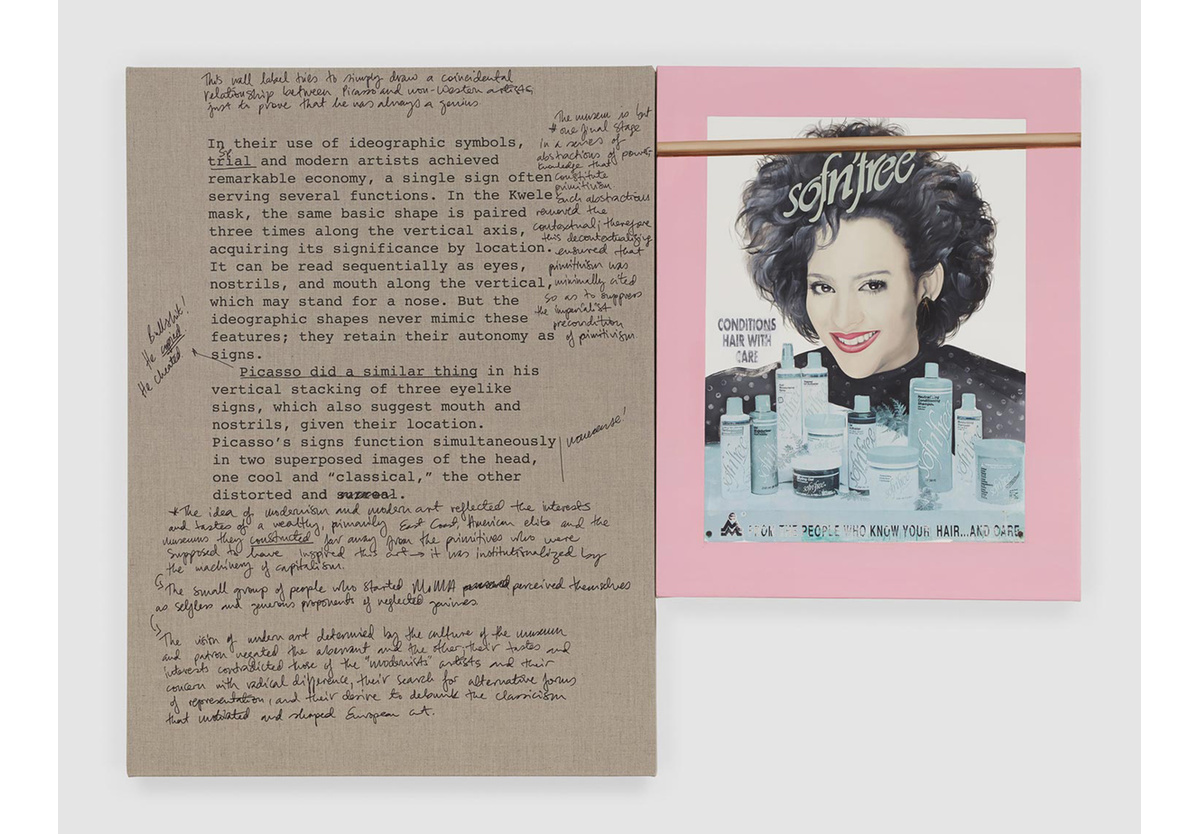 This wall label tries to simply draw a coincidental
relationship between Picasso and non-Western artists
just to prove that he was always a genius
In their use of ideographic symbols,
trial and modern artists achieved
remarkable economy, a single sign often
serving several functions. In the Kwele
mask, the same basic shape is paired
three times along the vertical axis,
acquiring its significance by location.
It can be read sequentially as eyes,
nostrils, and mouth along the vertical,
which may stand for a nose. But the
ideographic shapes never mimic these
features; they retain their autonomy as
signs.
Picasso did a similar thing in his
vertical stacking of three eyelike
signs, which also suggest mouth and
nostrils, given their location.
Picasso's signs function simultaneously
in two superposed images of the head,
one cool and "classical," the other
distorted and surreal.
The museum is but
* one final stage
in a series of
abstractions of power,
knowledge that
constitute
primitivism
such abstractions
removed the
contextual; therefore
this decontextualizing
ensured that
primitivism was
minimally cited
so as to suppress
the imperialist
precondition
of primitivism
Bullshit!
He copied
He cheated
nonsense!
*The idea of modernism and modern art reflected the interests
and tastes of a wealthy, primarily East Coast, American elite and the
museums they constructed far away from the primitives who were
supposed to have inspired this art → it was institutionalized by
the machinery of capitalism.
The small group of people who started MoMA perceived themselves
as selfless and generous proponents of neglected geniuses
The vision of modern art determined by the culture of the museum
and patron negated the aberrant and the other, their tastes and
interests contradicted those of the "modernists" artists and their
concern with radical difference, their search for alternative forms
of representation, and their desire to debunk the classicism
that motivated and shaped European art.
sofn'free
CONDITIONS
HAIR WITH
CARE
sofn'free
FROM THE PEOPLE WHO KNOW YOUR HAIR...AND CARE